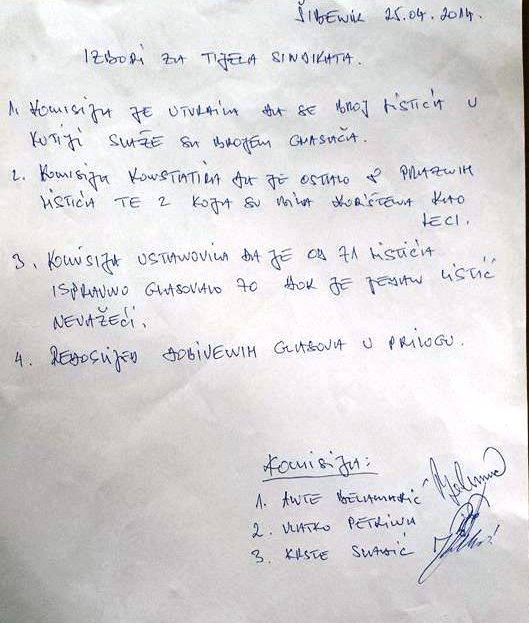 ŠIBENIK 25.04.2014.
IZBORI ZA TIJELA SINDIKATA.
1. KOMISIJA JE UTVRDILA DA SE BROJ LISTIĆA U
KUTIJI SLAŽE SA BROJEM GLASAČA.
2. KOMISIJA KONSTATIRA DA JE OSTALO 8 PRAZNIH
LISTIĆA TE 2 KOJA SU BILA KORIŠTENA KAO
LECI.
3. KOMISIJA USTANOVILA DA JE OD 71 LISTIĆA
ISPRAVNO GLASOVALO 70 DOK JE JEDAN LISTIĆ
NEVAŽEĆI.
4. REDOSLIJED DOBIVENIH GLASOVA U PRILOGU.
KOMISIJA:
1. ANTE BELAMARIĆ
2. VLATKO PETRINA
3. KRSTE SLAVIĆ